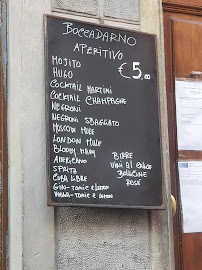 BOCCADARNO
APERITIVO
MOJITO
€5,00
HUGO
COCKTAIL MARTINI
COCKTAIL CHAMPAGNE
NEGRONI
NEGRONI SBAGLIATO
MOSCOW MULE
LONDON MULE
BLOODY MARY
AMERICANO
BIRRE
SPRITZ
VINI AL CALICE
CUBA LIBRE
BOLLICINE
GIN-TONIC e LEMON
ROSÉ
VODKA-TONIC e LEMON